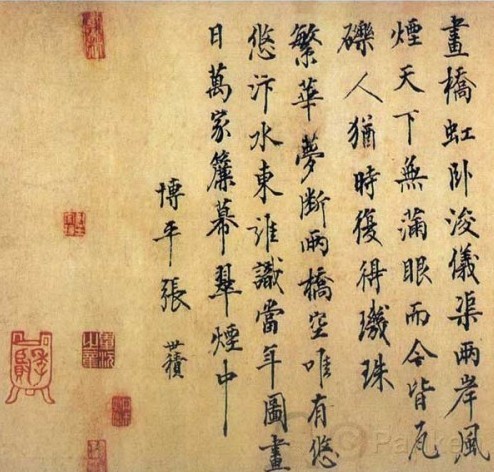 畫橋虹臥浚儀渠兩岸風
煙天下無滿眼而今皆瓦
礫人猶時復得璣珠
繁華夢斷兩橋空唯有悠
悠汴水東誰識當年圖畫
日萬家簾幕翠煙中
博平張世積